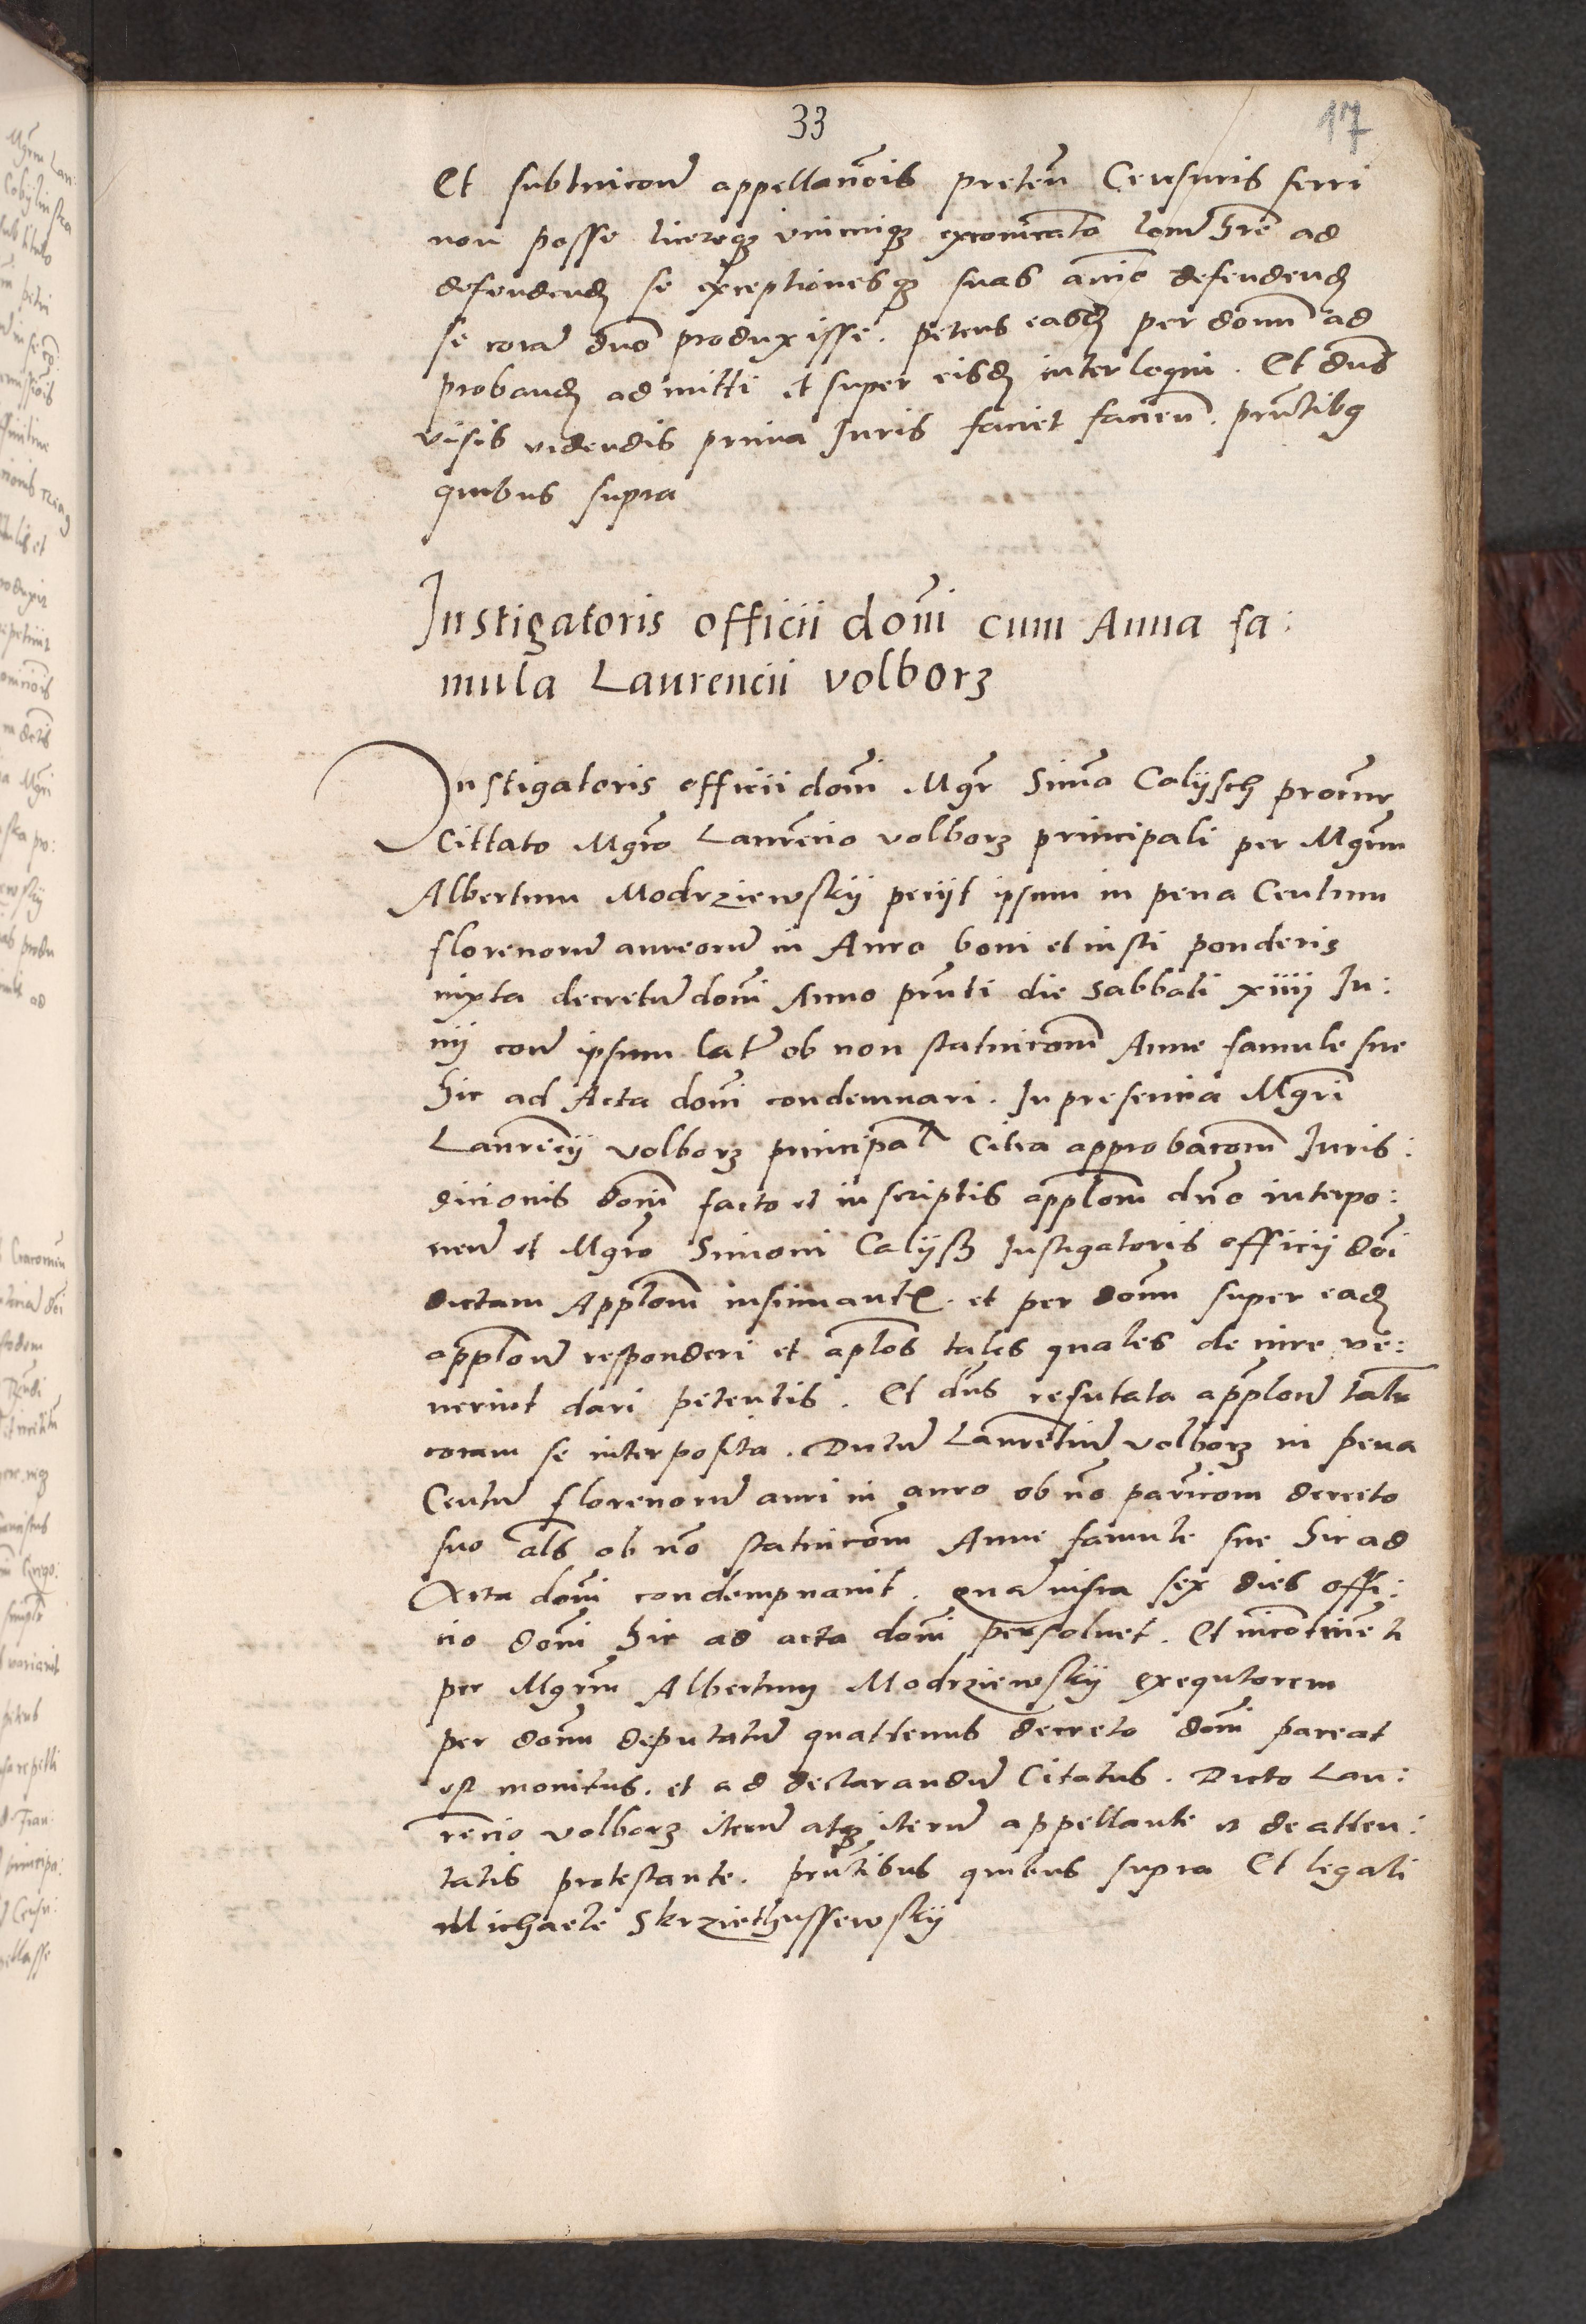 33
17
Et subtricone appellanois preten Censuris ferri
non posse licereq; unicuiq; exconicato tenere ad
defendend se exceptionesq; suas animo defendend
se cora dno produxisse. petens easd per donu ad
proband admitti et super eisd interloqui. Et dns
visis videndis prima Juris faciet facien. pntibq
quibus supra
Instigatoris officii domi cum Anna fa:
mula Laurencii volborz
Instigatoris officii domi Mgr Simo Calijsch procur
Cittato Mgro Laurencio volborz principali per Mgrm
Albertum Modrziewskij pecijt ipsum in pena Centum
florenoru aureoru in Auro boni et iusti ponderis
iuxta decretu domi Anno pnti die Sabbati xiiij Ju:
nij contra ipsum lat ob non statuicom Anne famule sue
hic ad Acta domi condemnari. In presencia Mgri
Laurecij volborz principal Citra approbacom Juris:
dicionis domi facto et in scriptis applom dno interpo:
nen et Mgro Simoni Calijsch Instigatoris officij doi
dictam Applom insinuantis. et per donu super ead
applone responderi et aplos tales quales de iure ve:
nerint dari petentis. Et dns refutata applone tali
coram se interposita. Dictu Laurentiu volborz in pena
Centu florenoru auri in auro ob no paricom decreto
suo als ob no statuicom Anne famule sue hic ad
Acta domi condempnavit. qua infra sex dies offi:
cio domi hic ad acta domi persolvet. Et incontinenti
per Mgrm Albertum Modrziewskij exequtorem
per donu deputatu quattenus decreto domi pareat
est monitus. et ad declarandu Citatus. Dicto Lau:
rencio volborz iteru atq; iteru appellante et de atten:
tatis protestante. pntibus quibus supra Et legali
Michaele Skrziethussewskij